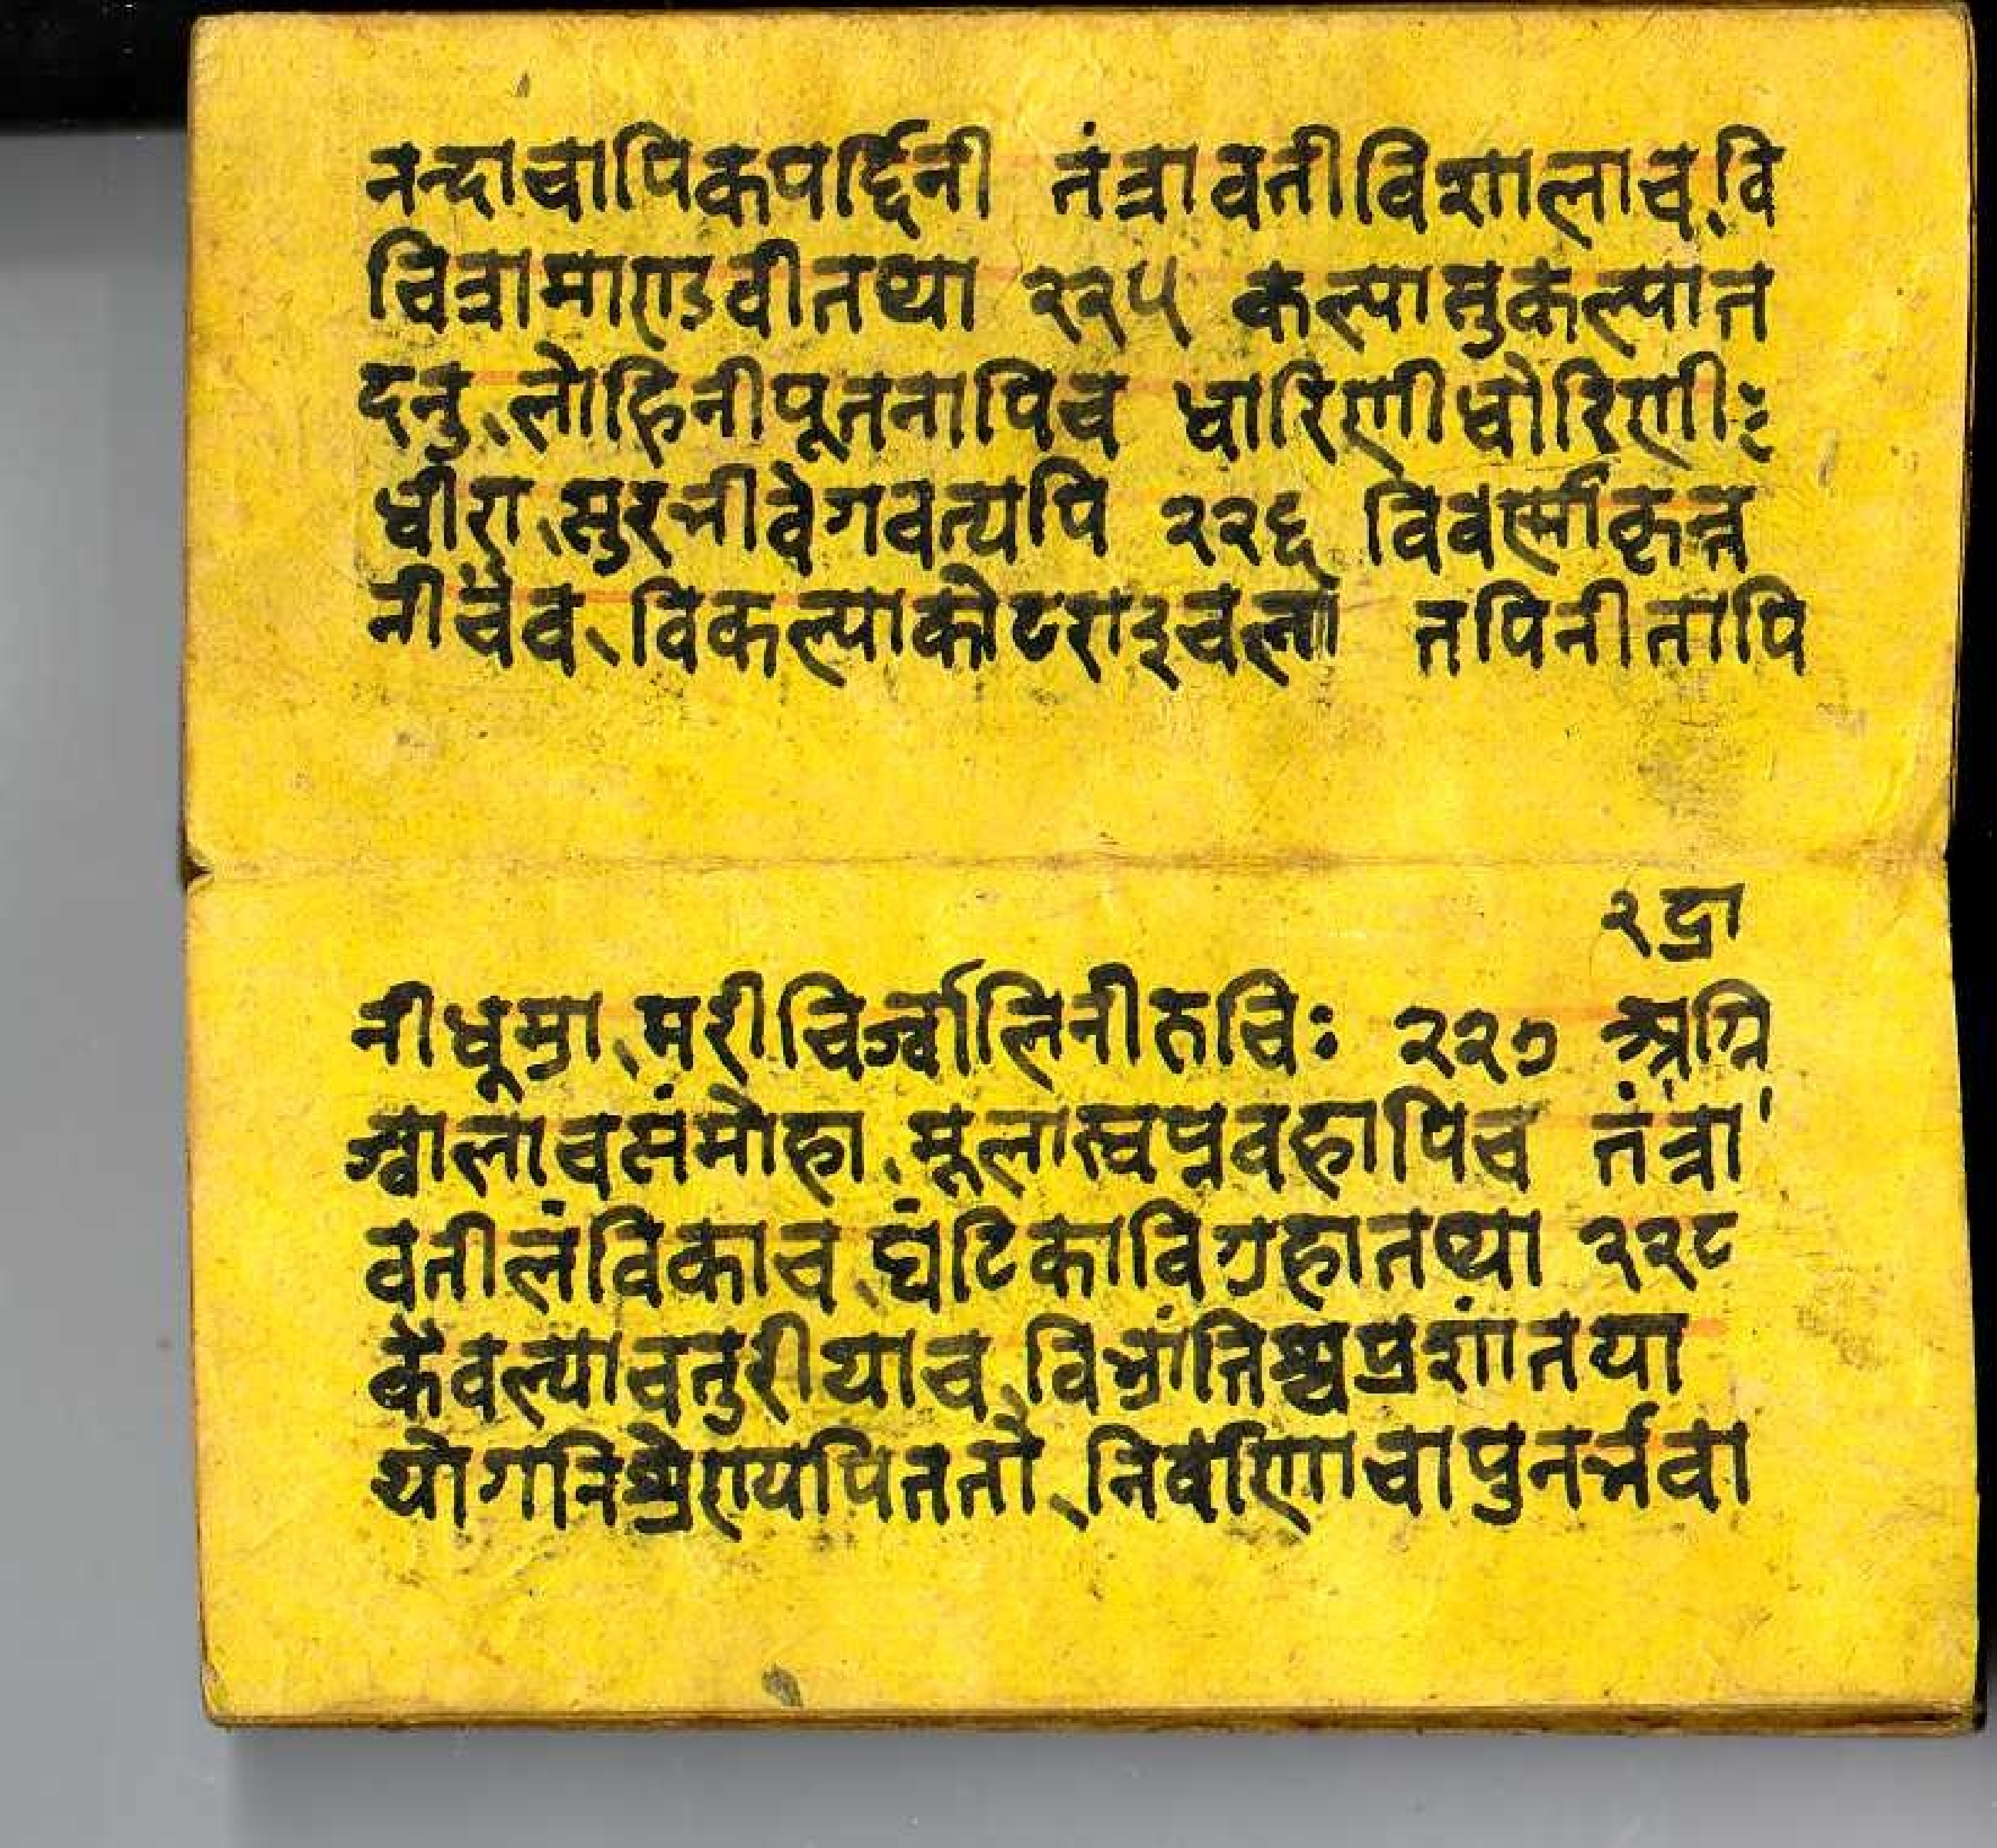 नन्दाचापिकपर्द्दिनी तंत्रावतीविशालाच वि
चित्रामाण्डवीतथा २२५ कल्पासुकल्पात
दनु लोहिनीपूतनापिच धारिणीधोरिणीः
धीरा सुरभीवेगवत्यपि २२६ विवर्साकृन्त
नीचैव विकल्पाकोटराञ्चला तपिनीतापि
२द्रा
नीधूम्रा मरीचिर्ज्वालिनीरुचिः २२७ अग्नि
ज्वालाचसंमोहा मूलास्वप्नवहापिच तंत्रा
वतीलंविकाच घंटिकाविग्रहातथा २२८
कैवल्याचतुरीयाच विभ्रांतिश्चप्रशांतया
योगनिश्रेण्यपिततो निर्वाणाचापुनर्न्नवा